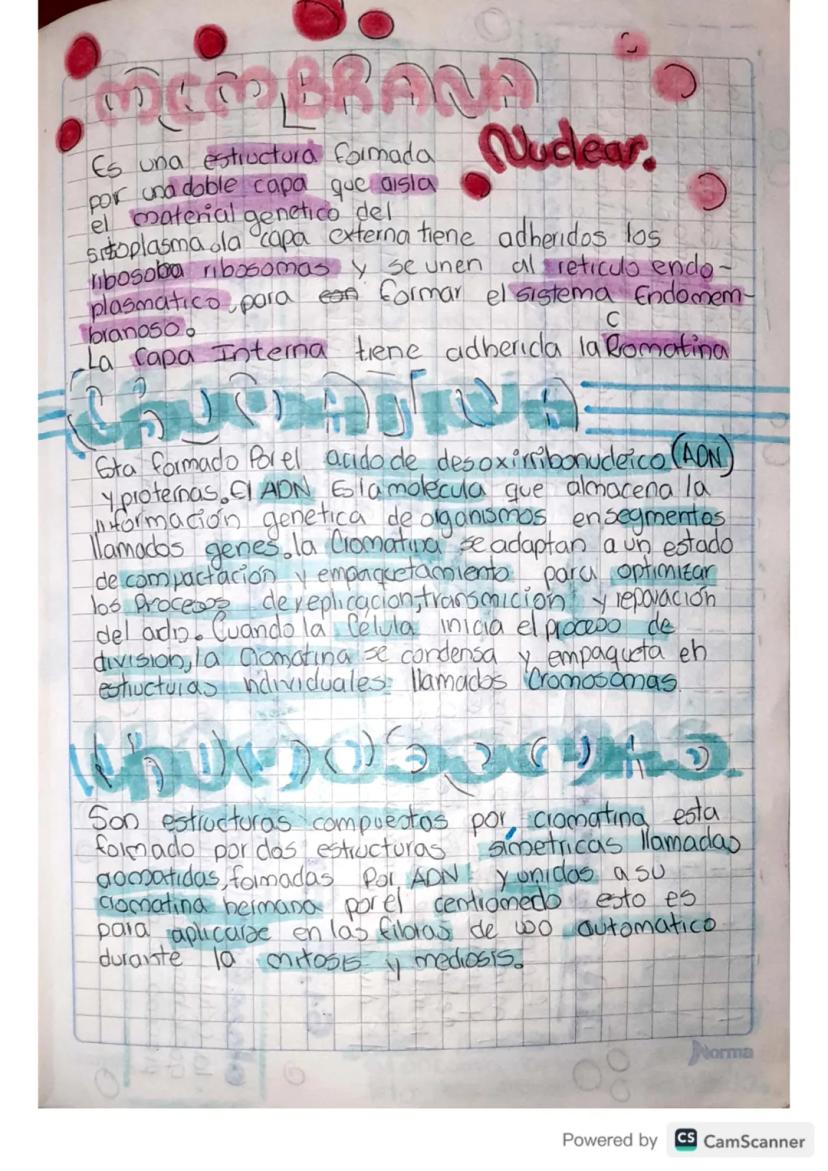 MEMBRANA
Nuclear.
Es una estructura formada
por una doble capa que aisla
el material genetico del
sitoplasma, la capa externa tiene adheridos los
ribosoba ribosomas y se unen al reticulo endo-
plasmatico, para con formar el sistema Endomem-
branoso.
C
La Capa Interna tiene adherida la Romatina
CROMATINA
Esta formado Por el acido de desoxirribonucleico (ADN)
y proteinas. El ADN Es la molecula que almacena la
información genetica de organismos en segmentos
llamados genes. la Cromatina se adaptan a un estado
de compactación y empaquetamiento para optimizar
los Procesos de replicacion, transmicion y reparación
del adn. Cuando la Celula inicia el proceso de
division, la Cromatina se condensa y empaqueta en
estructuras individuales llamados Cromosomas.
Son estructuras compuestas por cromatina esta
formado por dos estructuras simetricas llamadas
cromatidas, formadas Por ADN y unidos a su
cromatina hermana por el centromedo esto es
para aplicarse en las fibras de uso automatico
durante la mitosis y mediosis.
Norma
Powered by CS CamScanner